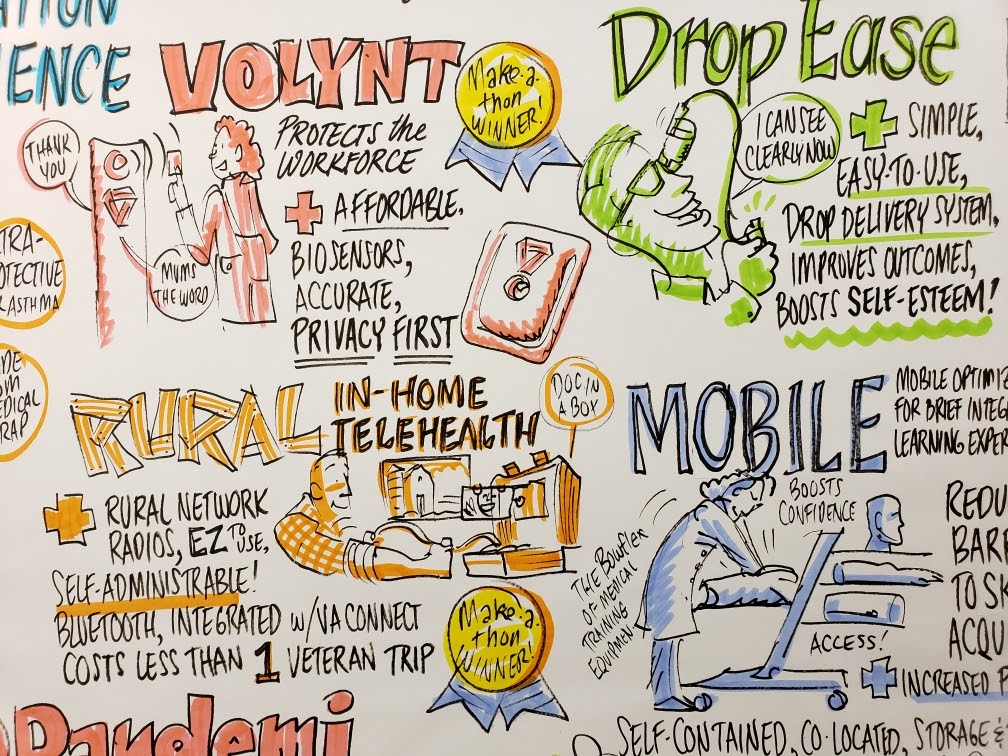 ATION
IENCE
VOLYNT
Make-a-
thon
WINNER!
THANK
YOU
PROTECTS the
WORKFORCE
+ AFFORDABLE,
BIOSENSORS,
ACCURATE,
PRIVACY FIRST
MUMS
THE WORD
Drop Ease
I CAN SEE
CLEARLY NOW
+ SIMPLE,
EASY-TO-USE,
DROP DELIVERY SYSTEM,
IMPROVES OUTCOMES,
BOOSTS SELF-ESTEEM!
TRA-
OTECTIVE
ASTHMA
DE
EDICAL
RAP
RURAL
IN-HOME
TELEHEALTH
DOC IN
A BOX
+ RURAL NETWORK
RADIOS, EZ TO USE,
SELF-ADMINISTRABLE!
BLUETOOTH, INTEGRATED W/VA CONNECT
COSTS LESS THAN 1 VETERAN TRIP
Make-a-
thon
WINNER!
MOBILE
MOBILE OPTIMIZ
FOR BRIEF INTEG
LEARNING EXPER
BOOSTS
CONFIDENCE
THE Bowflex
OF MEDICAL
TRAINING
EQUIPMENT
ACCESS!
REDU
BARR
TO SK
ACQU
+ INCREASED P
SELF-CONTAINED, CO-LOCATED, STORAGE &
Pandemi